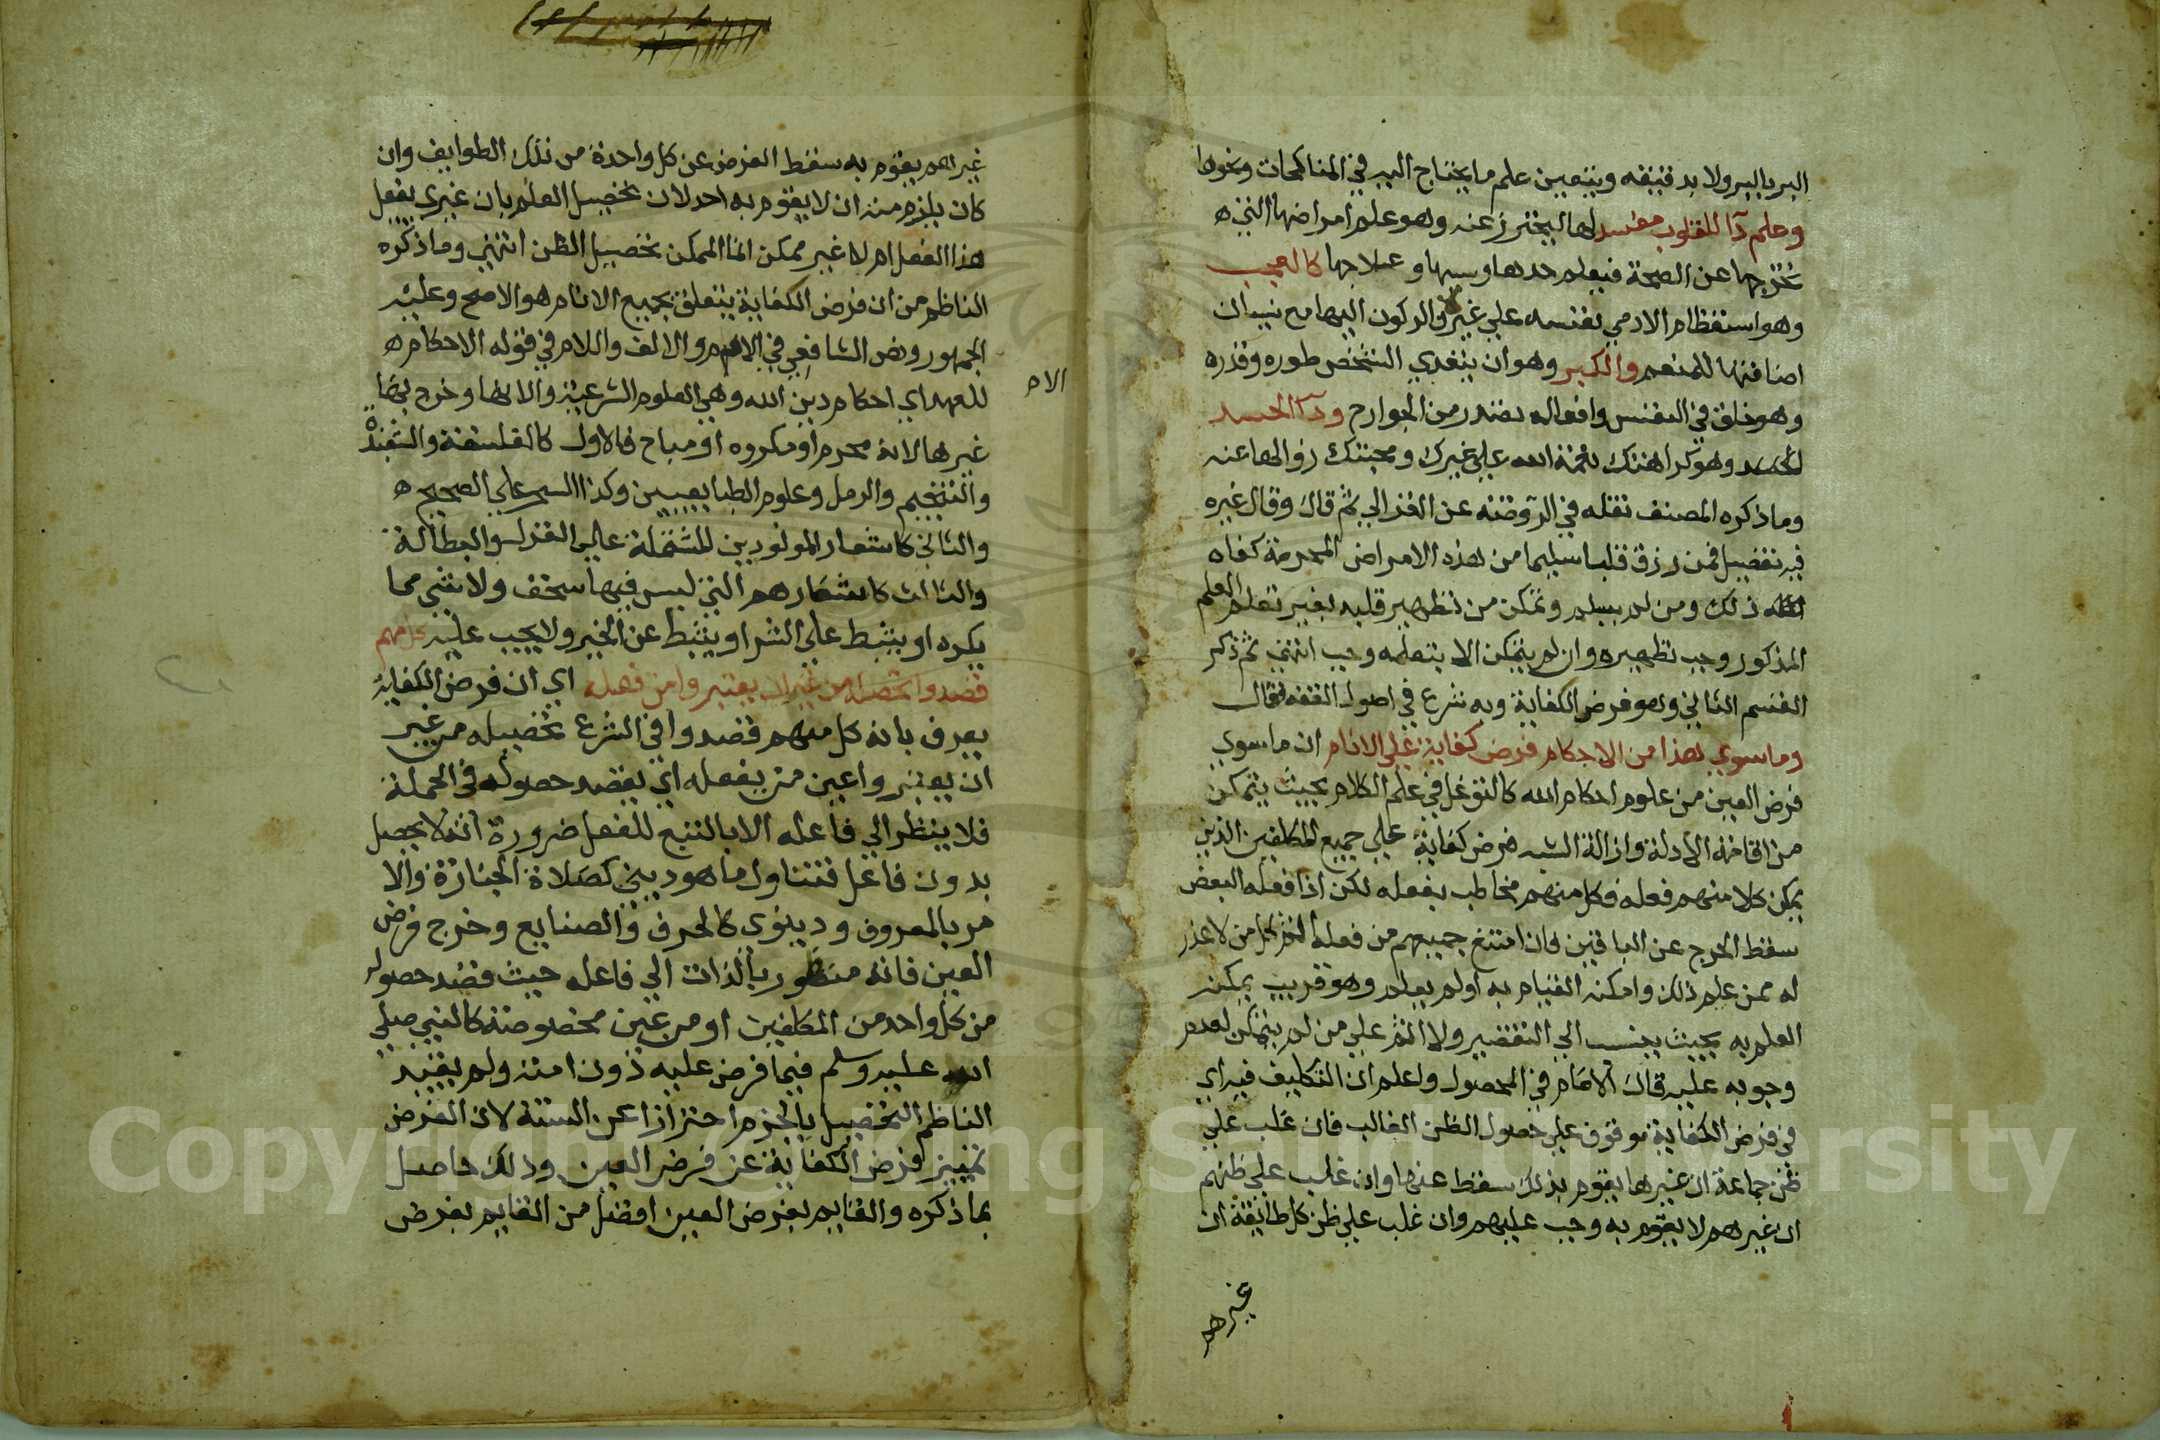 البر بالبر ولا بد فنيقه ويتعين علم ما يحتاج اليه في المناكحات ونحوها
وعلم دآ للقلوب مفسد لها ليحترز عنه وهو علم امراضها التي ه
تخرجها عن الصحة فيعلم حدها وسببها وعلاجها كالعجب
وهو استعظام الادمي نفسه علي غيره والركون اليها مع نسيان
اضافتها للمنعم والكبر وهو ان يتعدي الشخص طوره وقدره
وهو خلق في النفس وافعاله تصدر من الجوارح ودآ الحسد
وهو كراهتك نعمة الله علي غيرك ومحبتك زوالها عنه
وما ذكره المصنف نقله في الروضة عن الغزالي ثم قال وقال غيره
فيه تفصيل فمن رزق قلبا سليما من هذه الامراض المحرمة كفاه
ذلك ومن لم يسلم وتمكن من تطهير قلبه بغير تعلم العلم
المذكور وجب تطهيره وان لم يتمكن الا بتعلمه وجب انتهي ثم ذكر
القسم الثاني وهو فرض الكفاية وبه شرع في اصول الفقه فقال
وما سوي هذا من الاحكام فرض كفاية علي الانام ان ما سوي
فرض العين من علوم احكام الله كالتوغل في علم الكلام بحيث يتمكن
من اقامة الادلة وازالة الشبه فرض كفاية علي جميع المكلفين الذين
يمكن كلا منهم فعله فكل منهم مخاطب بفعله لكن اذا فعله البعض
سقط الحرج عن الباقين فان امتنع جميعهم من فعله اثم كل من لا عذر
له ممن علم ذلك وامكنه القيام به او لم يعلم وهو قريب يمكنه
العلم به بحيث ينسب الي التقصير ولا اثم علي من لم يتمكن لعدم
وجوبه عليه قال الامام في المحصول واعلم ان التكليف فيه اي
في فرض الكفاية موقوف علي حصول الظن الغالب فان غلب علي
ظن جماعة ان غيرها يقوم بذلك سقط عنها وان غلب علي ظنهم
ان غيرهم لا يقوم به وجب عليهم وان غلب علي ظن كل طائفة ان
غيرهم
غيرهم يقوم به سقط الفرض عن كل واحدة من تلك الطوايف وان
كان يلزم منه ان لا يقوم به احد لان تحصيل العلم بان غيري يفعل
هذا الفعل ام لا غير ممكن انما الممكن تحصيل الظن انتهي وما ذكره
الناظم من ان فرض الكفاية يتعلق بجميع الانام هو الاصح وعليه
الجمهور ونص الشافعي في الام والالف واللام في قوله الاحكام ه
الام
للعهد اي احكام دين الله وهي العلوم الشرعية والاتها وخرج بها
غيرها لانه محرم او مكروه او مباح فالاول كالفلسفة والشعبذة
والتنجيم والرمل وعلوم الطبايعيين وكذا السحر علي الصحيح ه
والثاني كاشعار المولودين المشتملة علي الغزل والبطالة
والثالث كاشعارهم التي ليس فيها سخف ولا شي مما
يكره او يثبط علي الشر او يثبط عن الخير ولا يجب عليه كل مهم
قصدوا تحصله من غير ان يعتبروا من فعله اي ان فرض الكفاية
يعرف بانه كل مهم قصدوا في الشرع تحصيله من غير
ان يعتبروا عين من يفعله اي يقصد حصوله في الجملة
فلا ينظر الي فاعله الا بالتبع للفعل ضرورة انه لا يحصل
بدون فاعل فتناول ما هو ديني كصلاة الجنازة والا
مر بالمعروف و دينوى كالحرف والصنايع وخرج فرض
العين فانه منظور بالذات الي فاعله حيث قصد حصوله
من كل واحد من المكلفين او من عين مخصوصة كالنبي صلي
الله عليه وسلم فيما فرض عليه دون امته ولم يقيد
الناظم التحصيل بالجزم احترازا عن السنة لان الغرض
تمييز فرض الكفاية عن فرض العين وذلك حاصل
بما ذكره والقايم بفرض العين افضل من القايم بفرض
Copyright © King Saud University